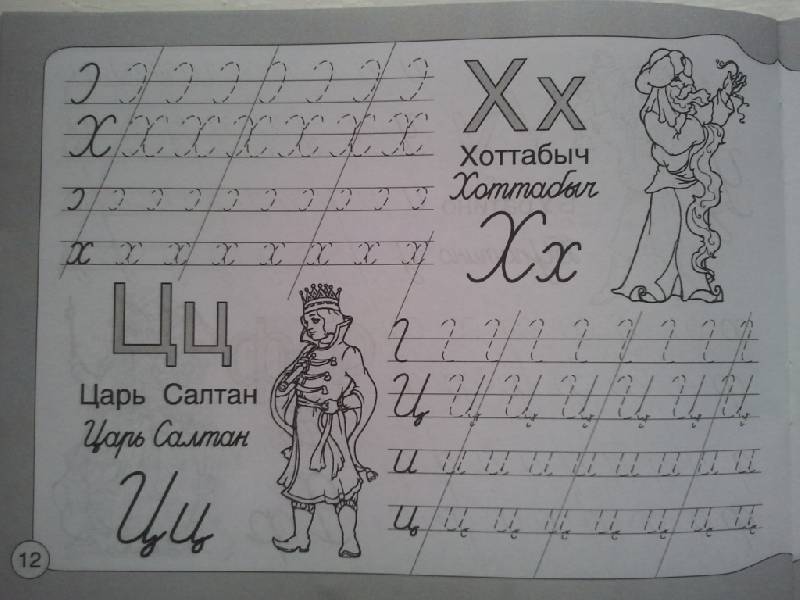 Хх
Хоттабыч
Хоттабыч
Хх
Х х х х х х х х
х х х х х х х х
Цц
Царь Салтан
Царь Салтан
Цц
Ц Ц Ц Ц Ц Ц Ц
и и и и и и и и
ц ц ц ц ц ц ц ц
12